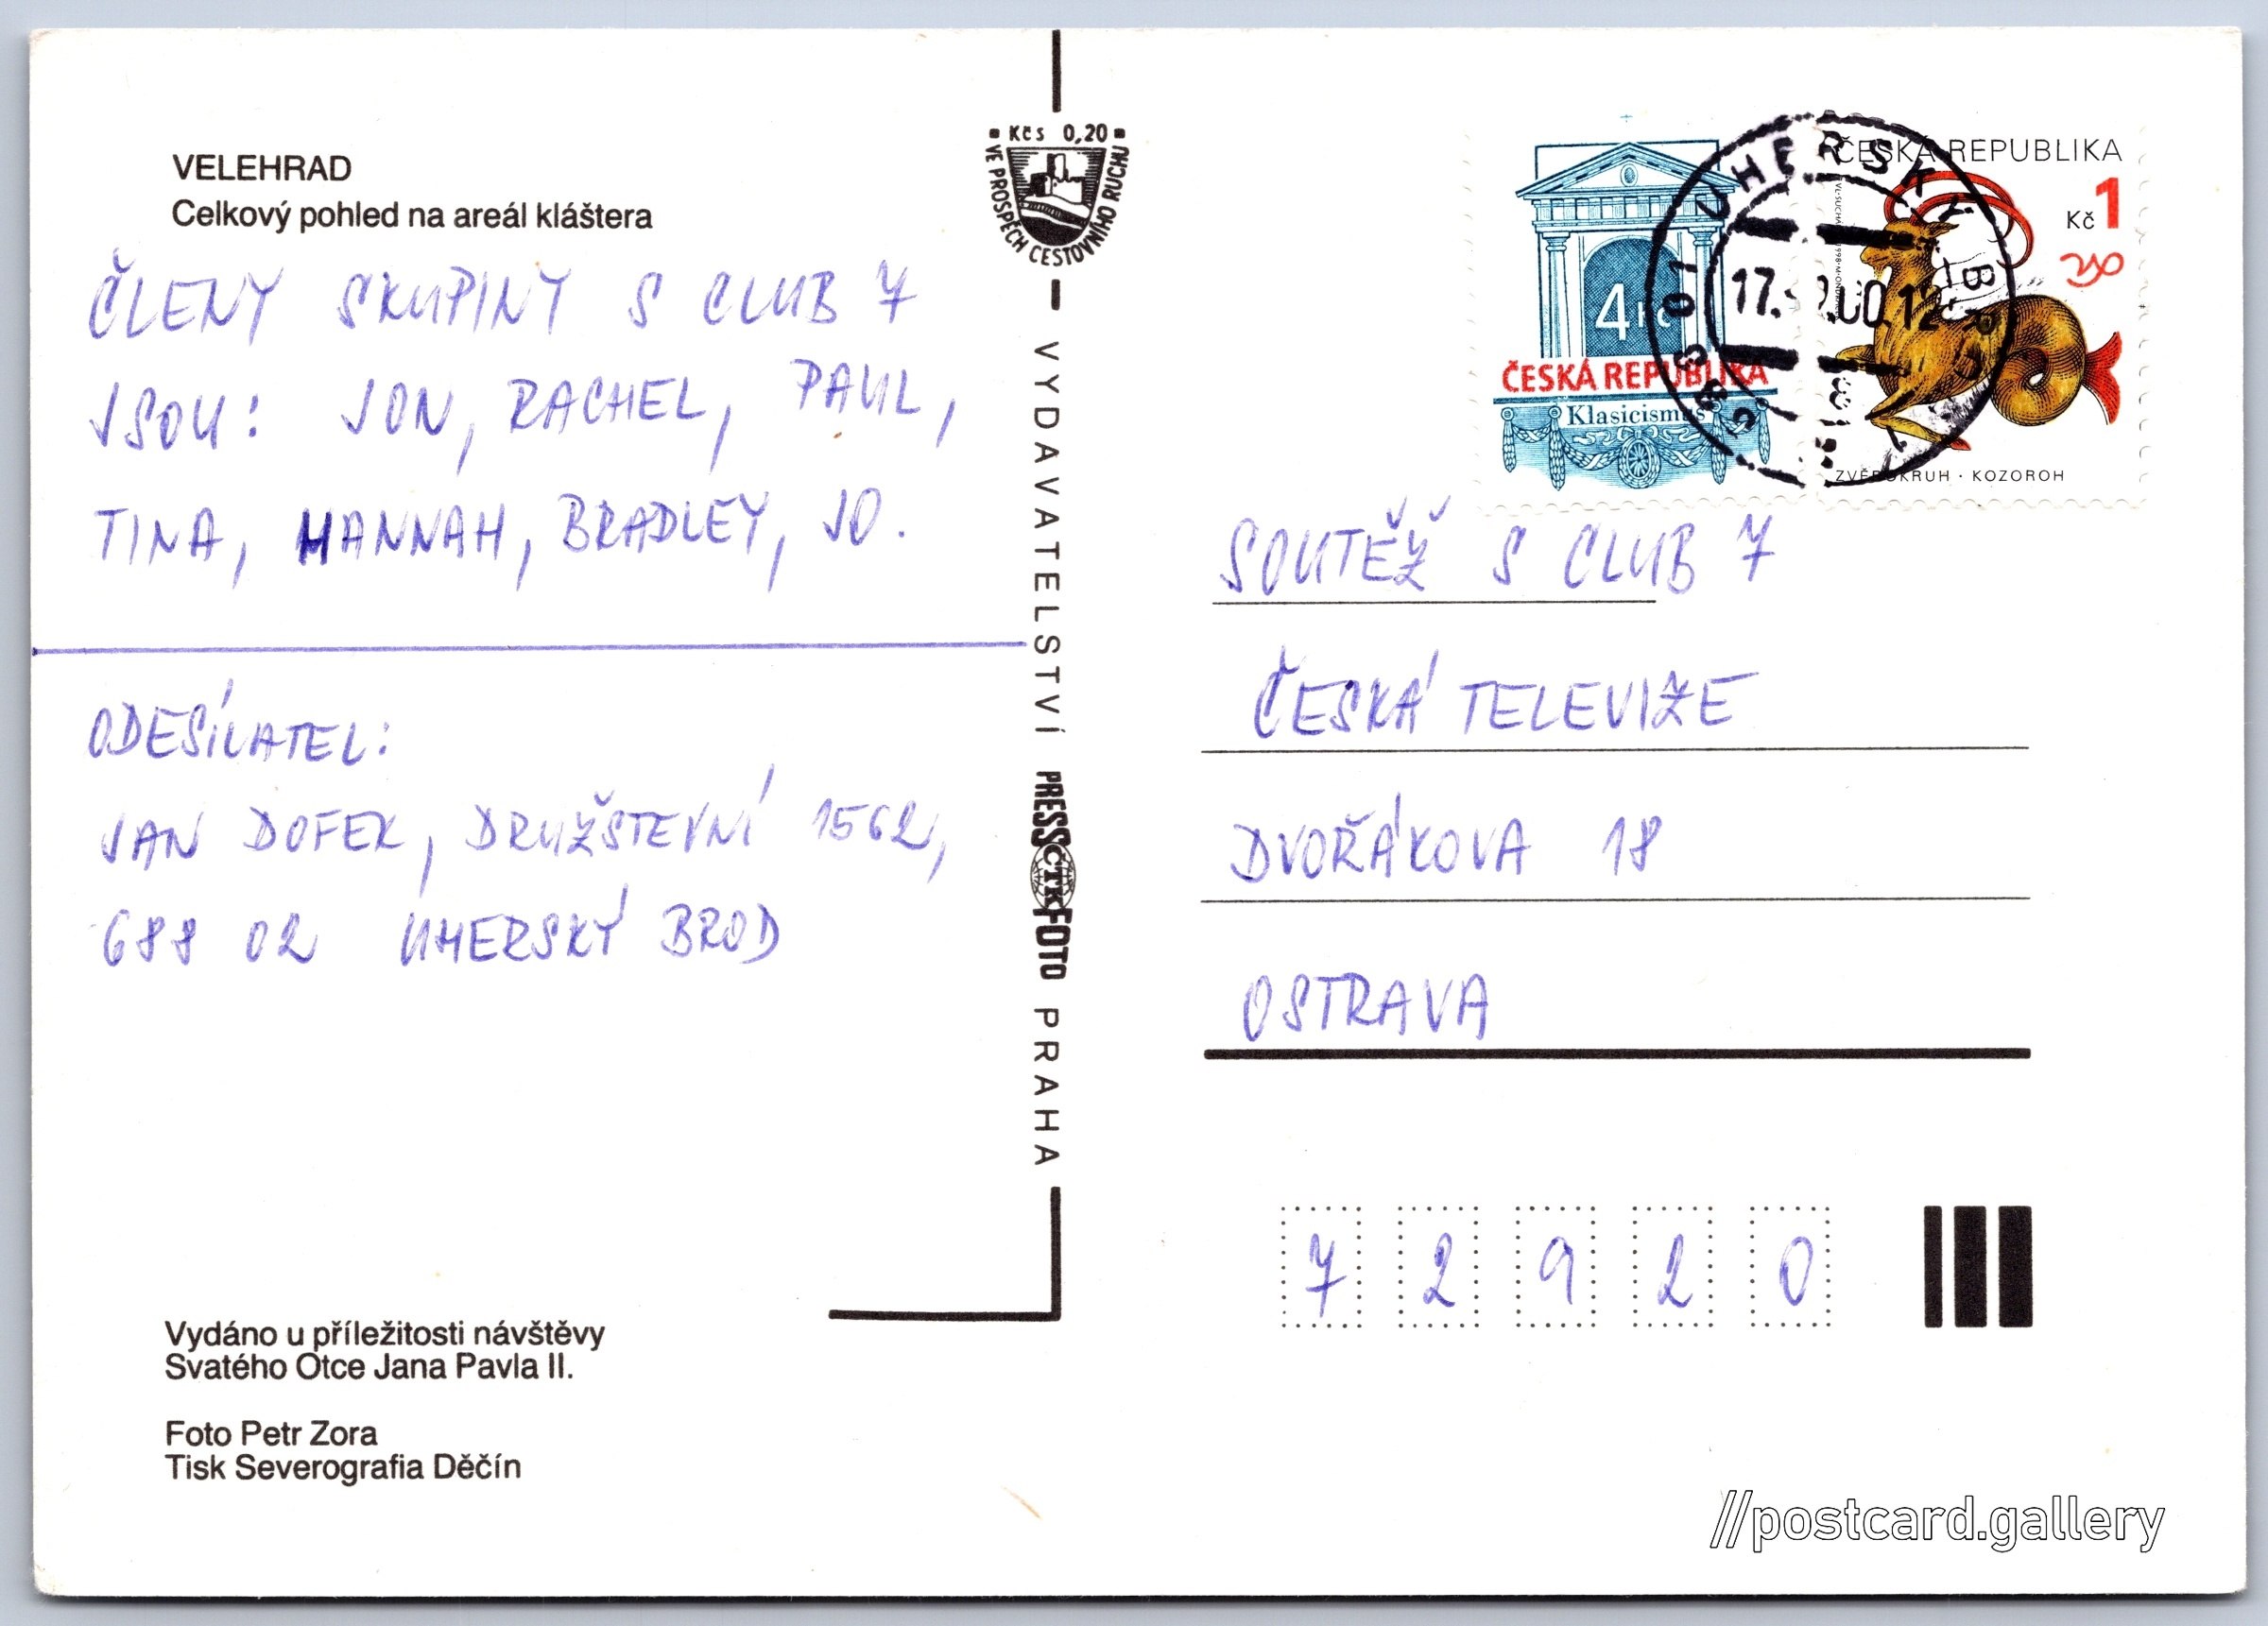 VELEHRAD
Celkový pohled na areál kláštera
ČLENY SKUPINY S CLUB 7
JSOU: JON, RACHEL, PAUL,
TINA, HANNAH, BRADLEY, JO.
ODESÍLATEL:
JAN DOFEK, DRUŽSTEVNÍ 1562,
688 02 UHERSKÝ BROD
Vydáno u příležitosti návštěvy
Svatého Otce Jana Pavla II.
Foto Petr Zora
Tisk Severografia Děčín
Kčs 0,20
VE PROSPĚCH CESTOVNÍHO RUCHU
VYDAVATELSTVÍ PRESSFOTO PRAHA
ČTK
4 Kč
ČESKÁ REPUBLIKA
Klasicismus
ČESKÁ REPUBLIKA
Kč 1
ZVĚROKRUH · KOZOROH
UHERSKÝ B
688 01
17. .00.12
SOUTĚŽ S CLUB 7
ČESKÁ TELEVIZE
DVOŘÁKOVA 18
OSTRAVA
7 2 9 2 0
//postcard.gallery